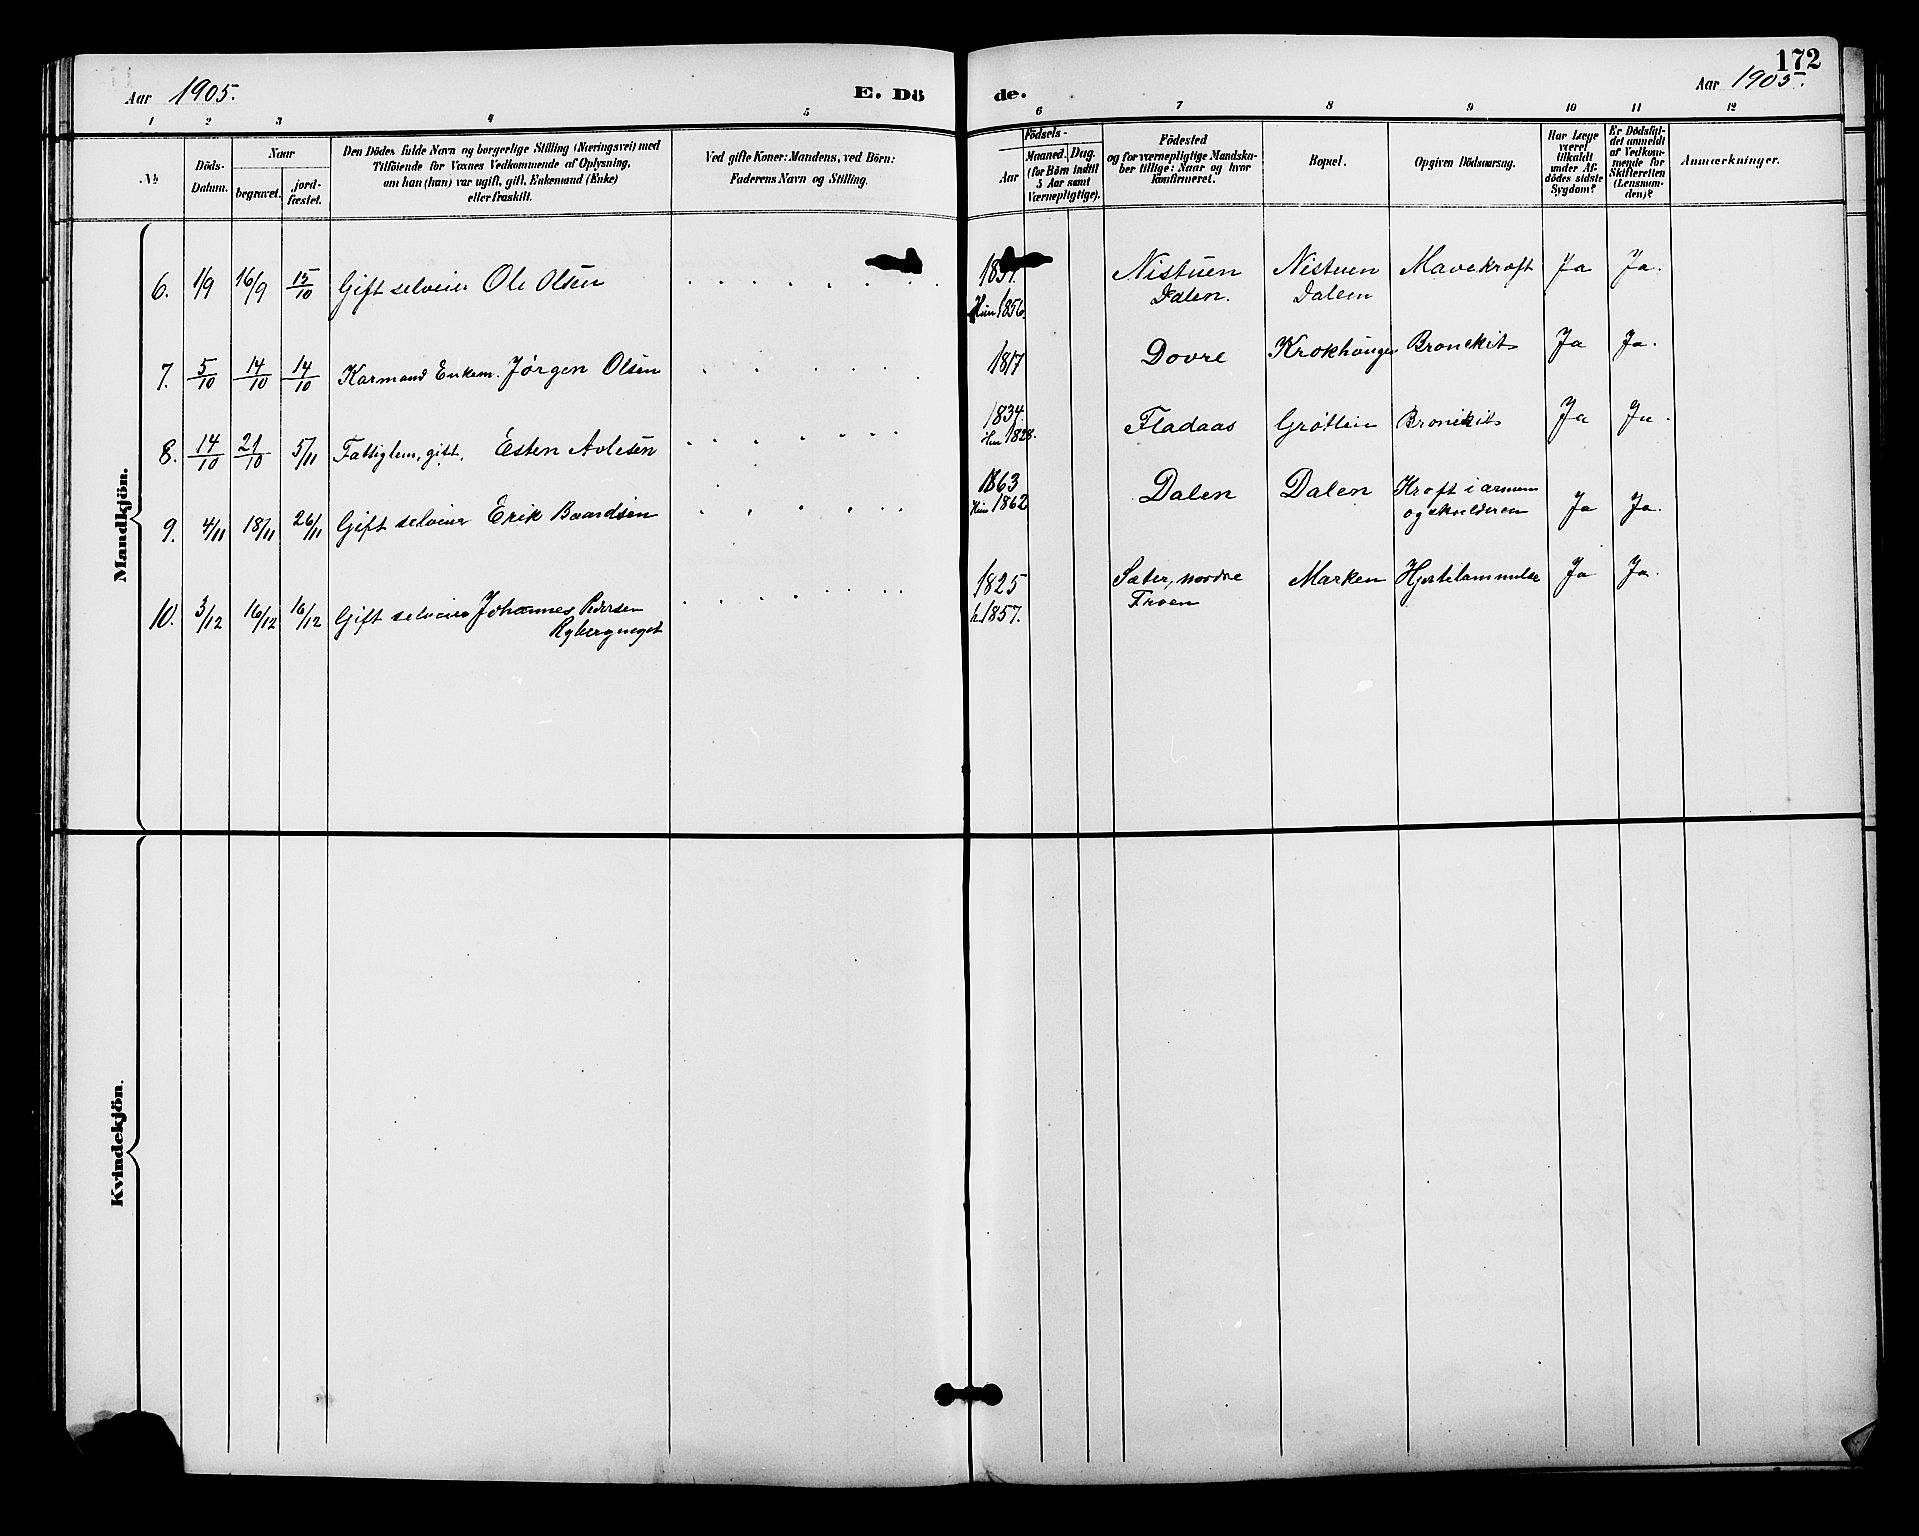 172
Aar 1905.
E. Dö
de.
Aar 1905.
1 2 3 4 5 6 7 8 9 10 11 12
№
Döds-
Datum.
Naar
begravet.
jord-
fæstet.
Den Dödes fulde Navn og borgerlige Stilling (Næringsvei) med
Tilföiende for Voxnes Vedkommende af Oplysning,
om han (hun) var ugift, gift, Enkemand (Enke)
eller fraskilt.
Ved gifte Koner: Mandens, ved Börn:
Faderens Navn og Stilling.
Födsels-
Aar
Maaned. Dag.
(for Börn indtil
5 Aar samt
Værnepligtige).
Födested
og for værnepligtige Mandska-
ber tillige: Naar og hvor
konfirmeret.
Bopæl.
Opgiven Dödsaarsag.
Har Læge
været
tilkaldt
under Af-
dödes sidste
Sygdom?
Er Dödsfal-
det anmeldt
af Vedkom-
mende for
Skifteretten
(Lensman-
den)?
Anmærkninger.
Mandkjön.
6. 1/9 16/9 15/10 Gift selveier Ole Olsen Nistuen Nistuen Mavekræft Ja Ja.
Dalen. Dalen
1856.
7. 5/10 14/10 14/10 Kaarmand Enkem. Jørgen Olsen 1817 Dovre Krokhaugen Bronckit Ja Ja.
8. 14/10 21/10 5/11 Fattiglem, gift. Esten Avlesen 1834 Fladaas Grøtlien Bronckit Ja Ja.
1828.
9. 4/11 18/11 26/11 Gift selveier Erik Baardsen 1863 Dalen Dalen Kræft i armen
1862 og skulderen Ja Ja.
10. 3/12 16/12 16/12 Gift selveier Johannes Pedersen 1825 Sæter, nordre Marken Hjertelammelse Ja Ja.
h. 1857. Troen
Kvindekjön.